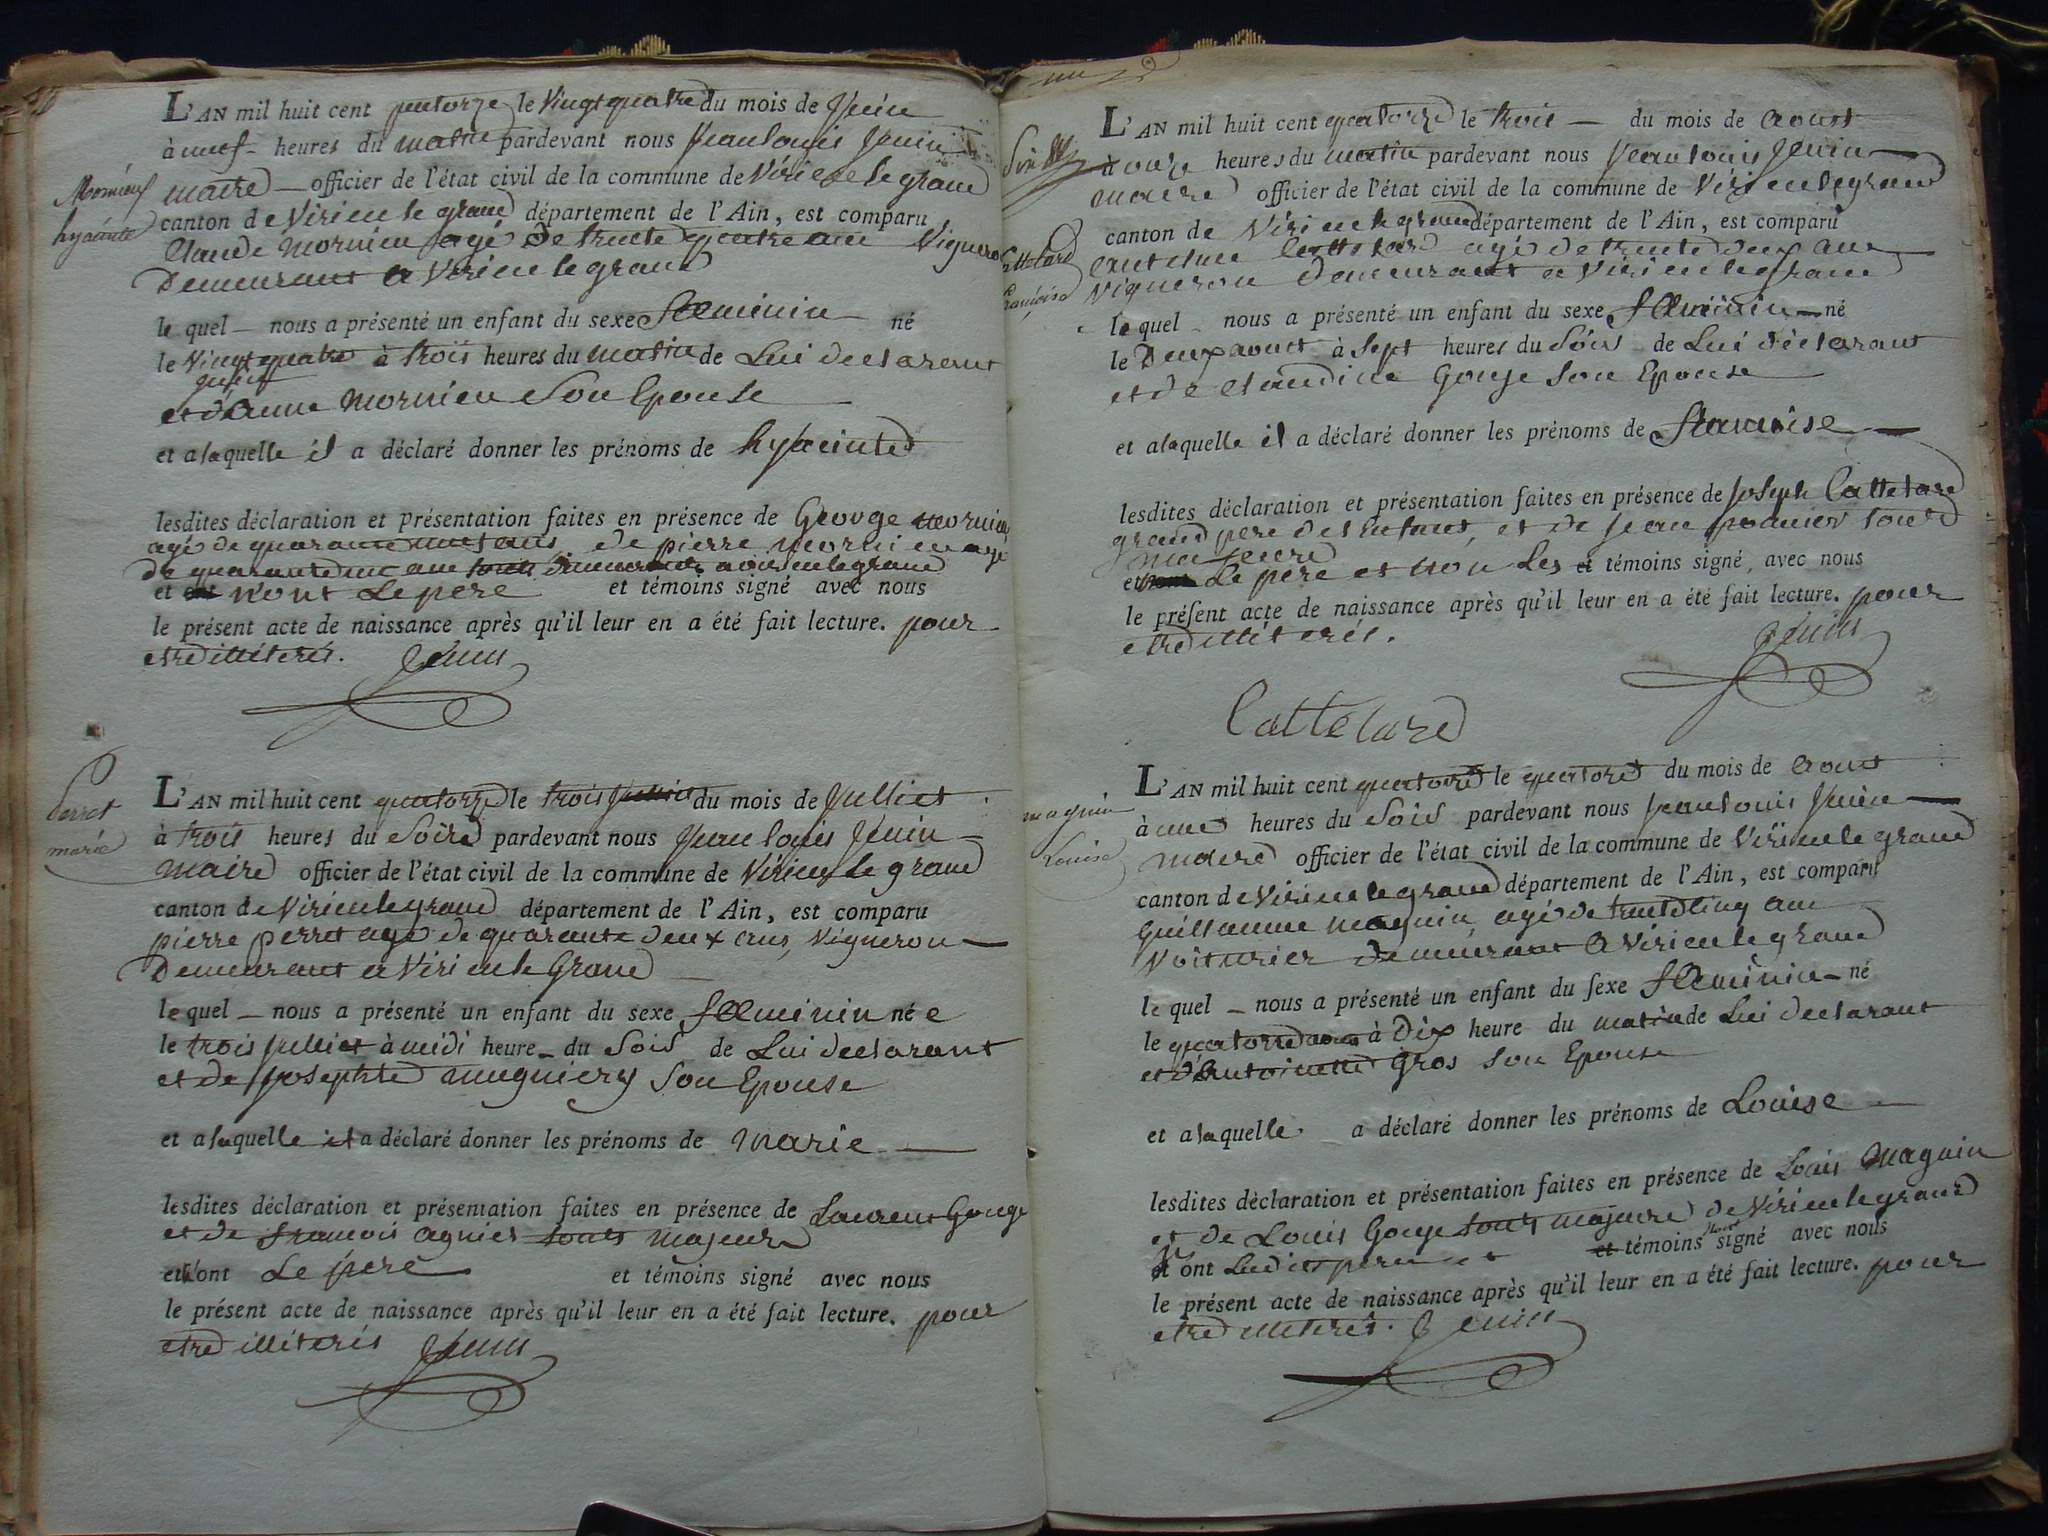 Mornieux
hyacinte
L'AN mil huit cent quatorze le Vingt quatre du mois de Juin
à neuf heures du matin pardevant nous Jean Louis Jenin
maire officier de l'état civil de la commune de Virieu le grand
canton de Virieu le grand département de l'Ain, est comparu
Claude mornieu agé de trente quatre ans Vigneron
Demeurant a Virieu le grand
le quel nous a présenté un enfant du sexe fœminin né
le Vingt quatre à trois heures du matin de Lui declarent
juin
et d'Anne mornieu Son Epouse
et a laquelle il a déclaré donner les prénoms de hyacinte
lesdites déclaration et présentation faites en présence de George mornieu
agé de quarante huit ans de pierre mornieu agé
de quarante ans demeurants a virieu le grand
et n'ont Le pere et témoins signé avec nous
le présent acte de naissance après qu'il leur en a été fait lecture. pour
etre illiterés. Jenin
Perret
marie
L'AN mil huit cent quatorze le trois du mois de Julliet
à trois heures du Soire pardevant nous Jean Louis Jenin
maire officier de l'état civil de la commune de Virieu le grand
canton de Virieu le grand département de l'Ain, est comparu
pierre perret agé de quarante deux ans, Vigneron
Demeurant a Virieu le Grand
le quel nous a présenté un enfant du sexe fœminin née
le trois julliet à midi heure du Soir de Lui declarant
et de josephte mugniery Son Epouse
et a laquelle il a déclaré donner les prénoms de marie
lesdites déclaration et présentation faites en présence de Laurent Gouge
et de francois agnies touts majeurs
et n'ont Le pere et témoins signé avec nous
le présent acte de naissance après qu'il leur en a été fait lecture. pour
etre illiterés Jenin
Cattelard
françoise
L'AN mil huit cent quatorze le trois du mois de aoust
à onze heures du matin pardevant nous Jean Louis Jenin
maire officier de l'état civil de la commune de Virieu le grand
canton de Virieu le grand département de l'Ain, est comparu
Cattelard agé de trente deux ans
Vigneron demeurant a Virieu le grand
le quel nous a présenté un enfant du sexe fœminin né
le Deux aout à Sept heures du Soir de Lui déclarant
et de claudine Gouge son Epouse
et a laquelle il a déclaré donner les prénoms de francoise
lesdites déclaration et présentation faites en présence de joseph Cattelard
grand pere de l'enfant, et de jean touts
majeurs
et Le pere et non Les témoins signé, avec nous
le présent acte de naissance après qu'il leur en a été fait lecture. pour
etre illiterés. Jenin
Cattelard
magnin
Louise
L'AN mil huit cent quatorze le quatorze du mois de aout
à une heures du Soir pardevant nous Jean Louis Jenin
maire officier de l'état civil de la commune de Virieu le grand
canton de Virieu le grand département de l'Ain, est comparu
Guillaume magnin, agé de trente cinq ans
Voiturier demeurant a Virieu le grand
le quel nous a présenté un enfant du sexe fœminin né
le quatorze aout à Dix heure du matin de Lui declarant
et d'Antoinette Gros son Epouse
et a laquelle a déclaré donner les prénoms de Louise
lesdites déclaration et présentation faites en présence de Louis magnin
et de Louis Gouge touts majeurs de Virieu le grand
n'ont Ledit pere et témoins signé avec nous
le présent acte de naissance après qu'il leur en a été fait lecture. pour
etre illiterés. Jenin